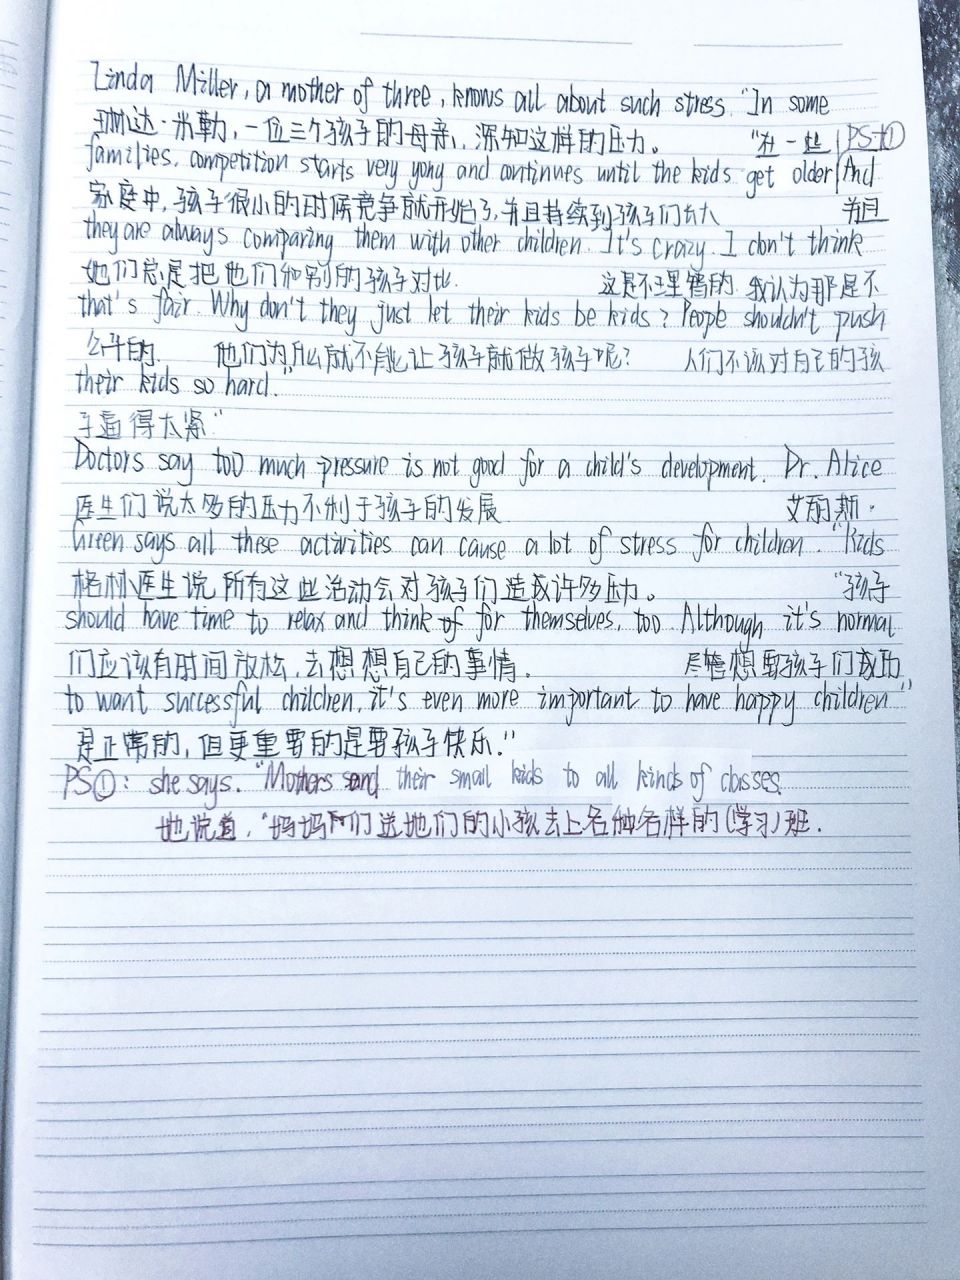 Linda Miller, a mother of three, knows all about such stress. "In some
琳达·米勒,一位三个孩子的母亲,深知这样的压力。 "在一些 PS①
families, competition starts very yong and continues until the kids get older And
家庭中,孩子很小的时候竞争就开始了,并且持续到孩子们长大 并且
they are always comparing them with other children. It's crazy. I don't think
她们总是把他们和别的孩子对比. 这是不理智的. 我认为那是不
that's fair. Why don't they just let their kids be kids? People shouldn't push
公平的. 他们为什么就不能让孩子就做孩子呢? 人们不该对自己的孩
their kids so hard."
子逼得太紧"
Doctors say too much pressure is not good for a child's development. Dr. Alice
医生们说太多的压力不利于孩子的发展 艾丽斯·
Green says all these activities can cause a lot of stress for children. "Kids
格林医生说,所有这些活动会对孩子们造成许多压力。 "孩子
should have time to relax and think of for themselves, too. Although it's normal
们应该有时间放松,去想想自己的事情. 尽管想要孩子们成功
to want successful children, it's even more important to have happy children"
是正常的,但更重要的是要孩子快乐."
PS①: she says. "Mothers send their small kids to all kinds of classes.
她说道,"妈妈们送她们的小孩去上各种各样的(学习)班.